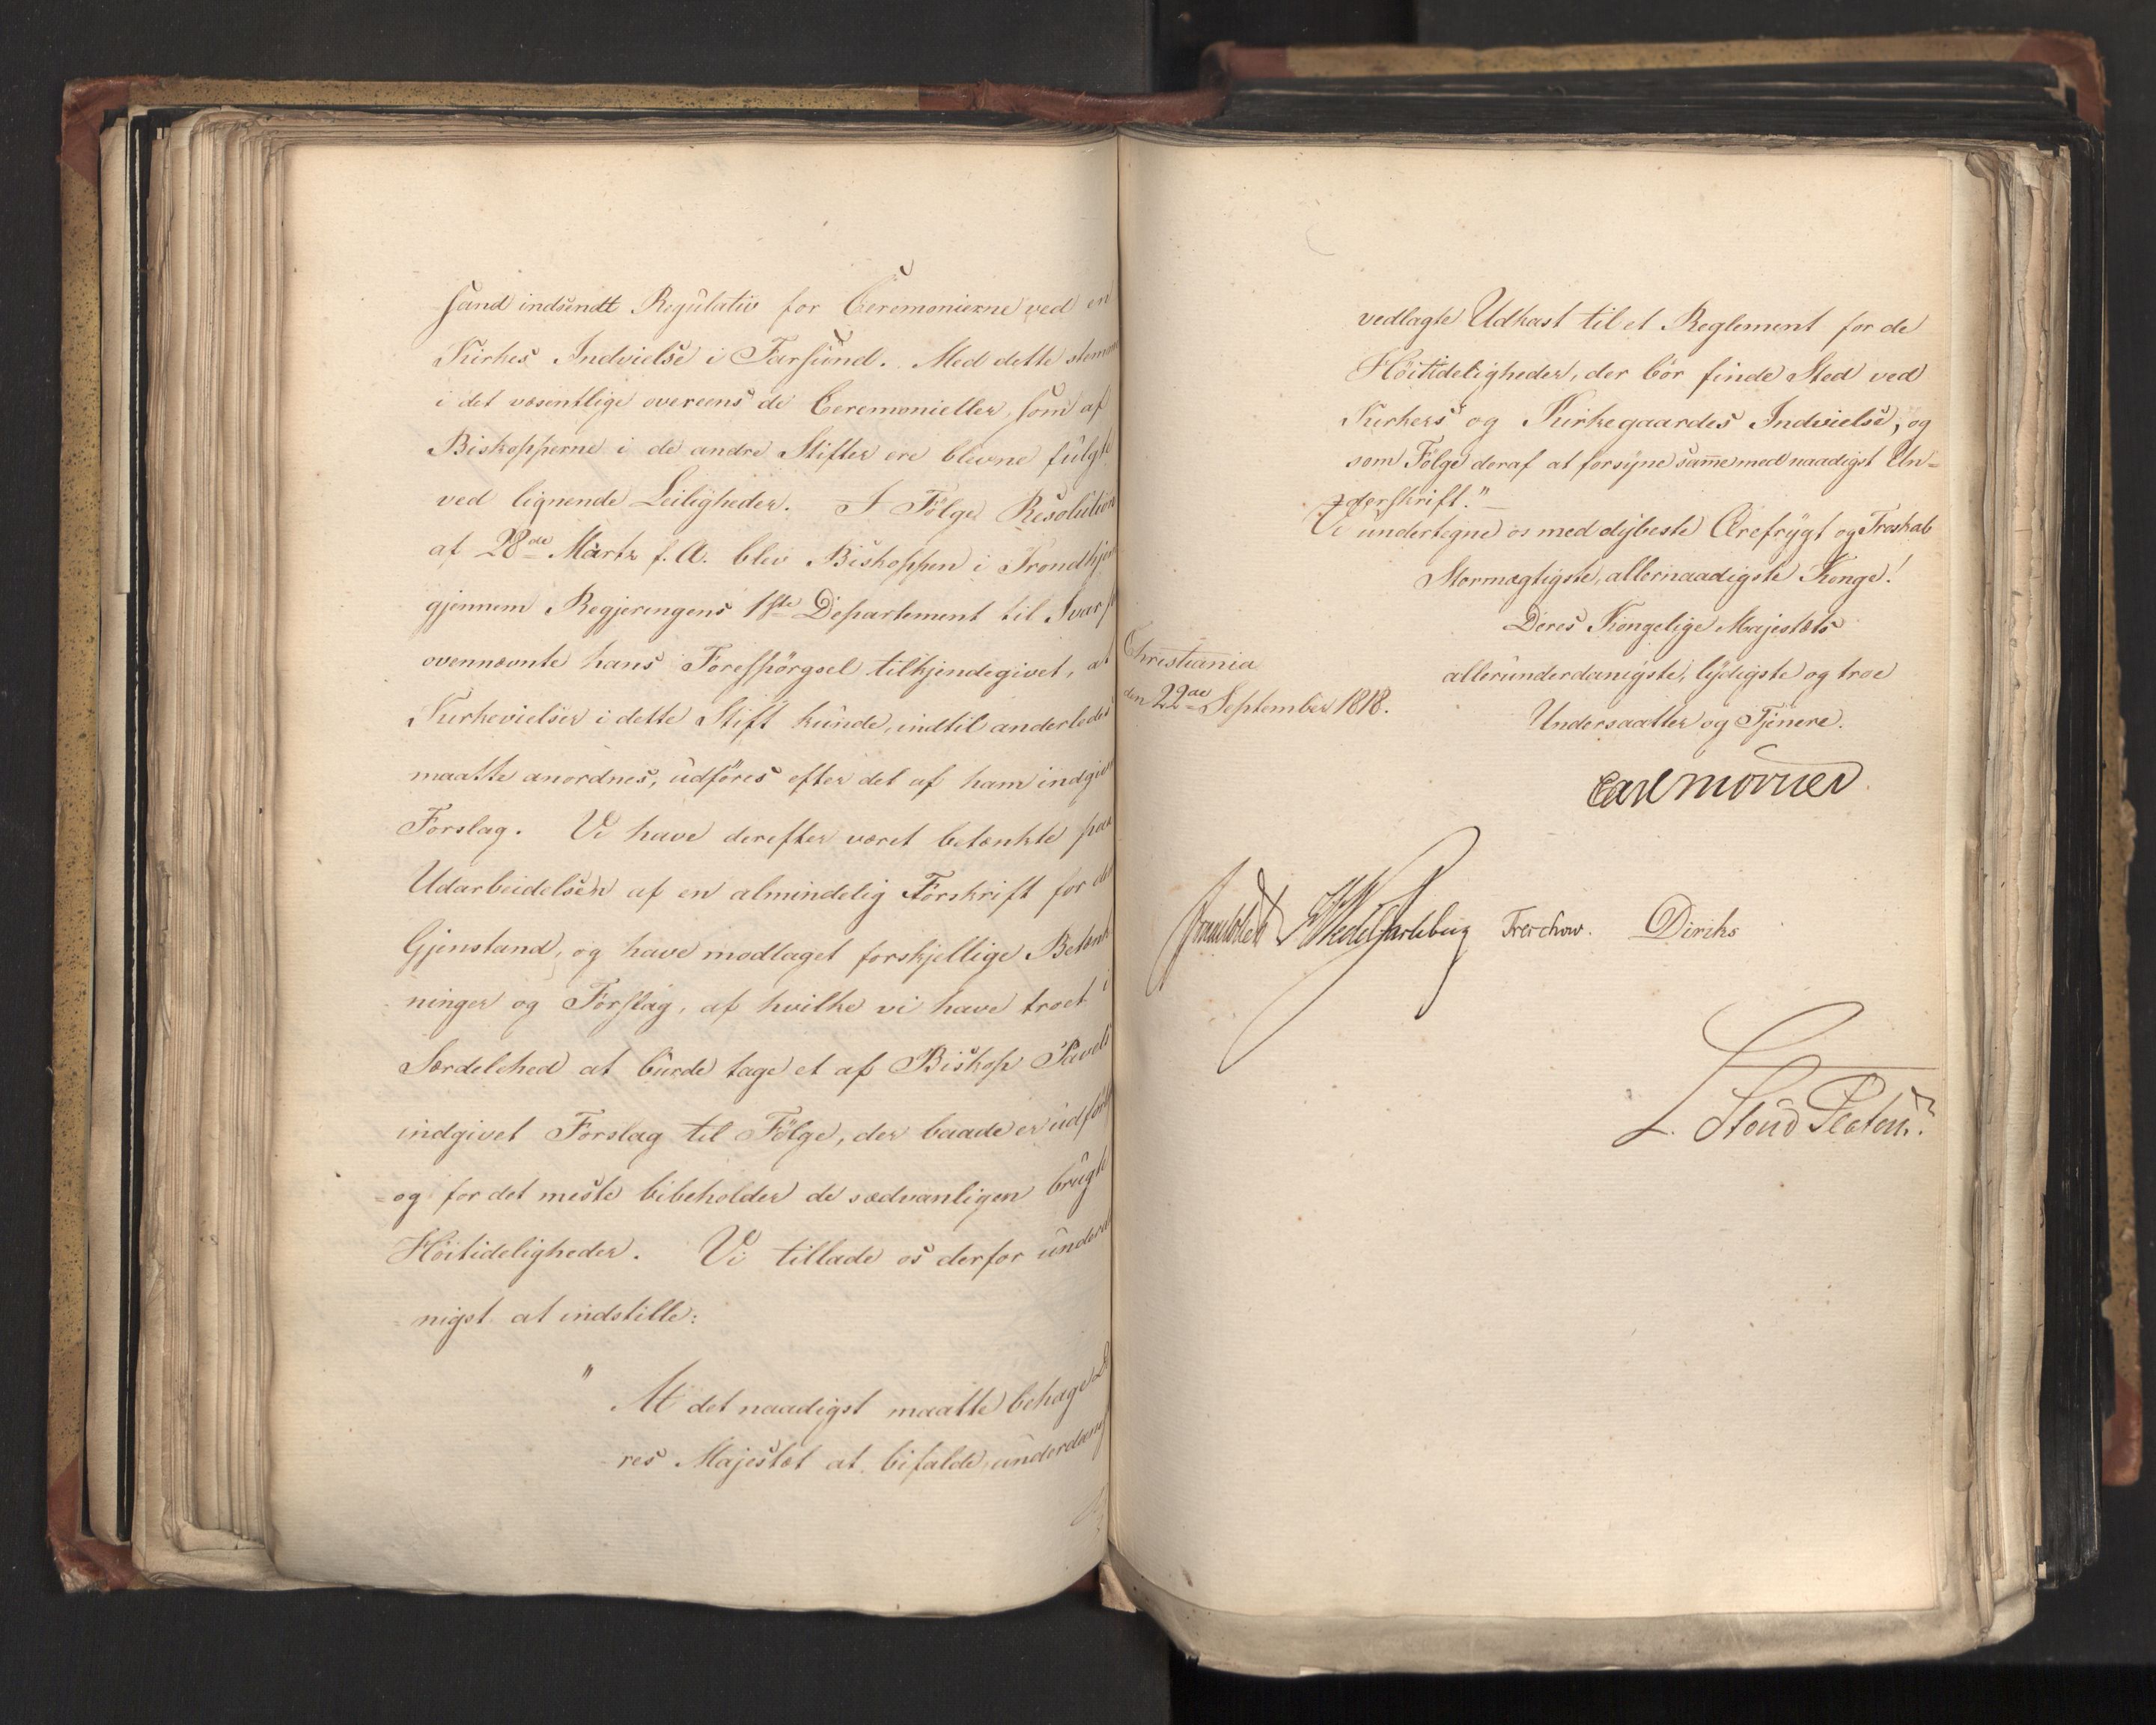 sand indsendt Regulativ for Ceremonierne ved en
Kirkes Indvielse i Farsund. Med dette stemme
i det væsentlige overeens de Ceremonieller, som af
Biskopperne i de andre Stifter ere blevne fulgte
ved lignende Leiligheder. I Fölge Resolution
af 28de Martz f. A. blev Biskoppen i Trondhjem
gjennem Regjeringens 1ste Departement til Svar
ovennævnte hans Forespörgsel tilkjendegivet, at
Kirkevielser i dette Stift kunde, indtil anderledes
maatte anordnes, udföres efter det af ham indgivne
Forslag. Vi have derefter været betænkte paa
Udarbeidelsen af en almindelig Forskrift for den
Gjenstand, og have modtaget forskjellige Betænk
ninger og Forslag, af hvilke vi have troet i
Særdelehed at burde tage et af Biskop Pavels
indgivet Forslag til Fölge, der baade er udför
og for det meste bibeholder de sædvanligen brugte
Höitideligheder. Vi tillade os derfor underd
nigst at indstille:
" At det naadigst maatte behage De
res Majestæt at bifalde underdanig
vedlagte Udkast til et Reglement for de
Höitideligheder, der bör finde Sted ved
Kirkers og Kirkegaardes Indvielse, og
som Fölge deraf at forsyne samme med naadigst Un=
derskrift."
Vi undertegne os med dybeste Ærefrygt og Troskab
Stormægtigste, allernaadigste Konge!
Deres Kongelige Majestæts
allerunderdanigste, lydigste og troe
Undersaatter og Tjenere.
Christiania
den 22de September 1818.
Carl Mörner
Sommerhielm HWedel Jarlsberg Treschow. Diriks
L. Stoud Platou.